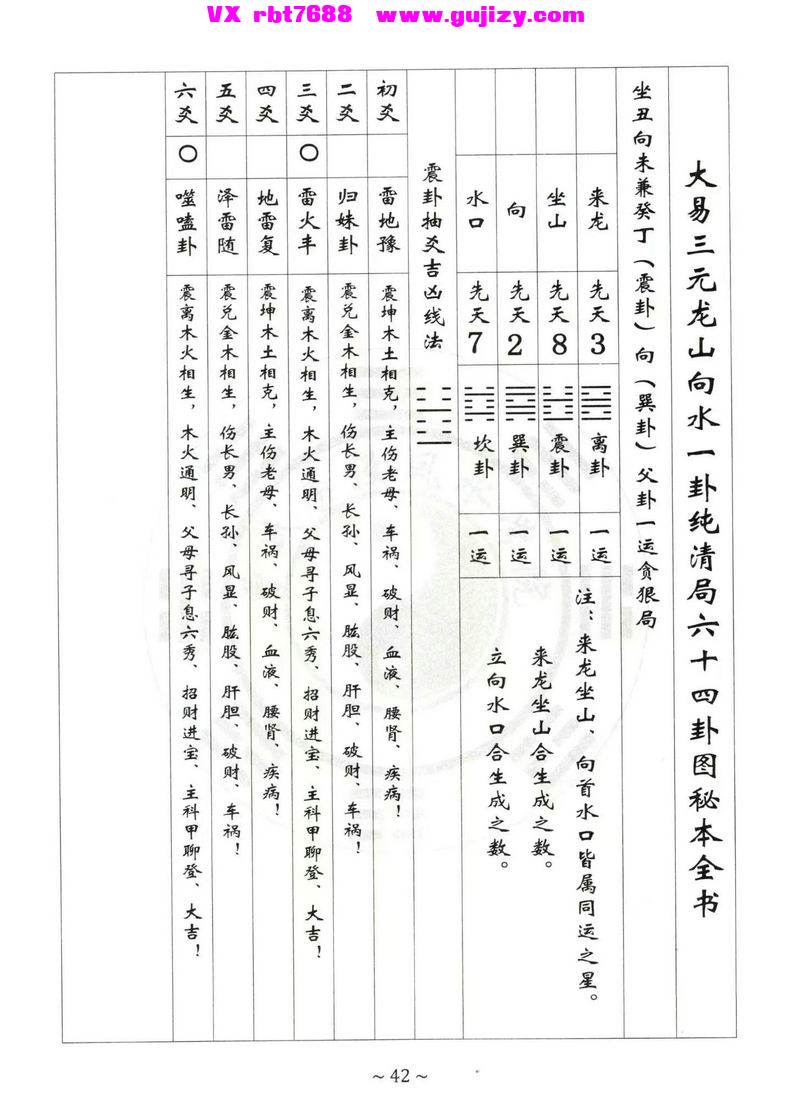 VX rbt7688 www.gujizy.com
大易三元龙山向水一卦纯清局六十四卦图秘本全书
坐丑向未兼癸丁（震卦）向（巽卦）父卦一运贪狠局
来龙 先天3 离卦 一运
坐山 先天8 震卦 一运
向 先天2 巽卦 一运
水口 先天7 坎卦 一运
注：来龙坐山、向首水口皆属同运之星。
来龙坐山合生成之数。
立向水口合生成之数。
震卦抽爻吉凶线法
初爻 雷地豫 震坤木土相克，主伤老母、车祸、破财、血液、腰肾、疾病！
二爻 归妹卦 震兑金木相生，伤长男、长孙、风显、肱股、肝胆、破财、车祸！
三爻 〇 雷火丰 震离木火相生，木火通明、父母寻子息六秀、招财进宝、主科甲聊登、大吉！
四爻 地雷复 震坤木土相克，主伤老母、车祸、破财、血液、腰肾、疾病！
五爻 泽雷随 震兑金木相生，伤长男、长孙、风显、肱股、肝胆、破财、车祸！
六爻 〇 噬嗑卦 震离木火相生，木火通明、父母寻子息六秀、招财进宝、主科甲聊登、大吉！
~ 42 ~